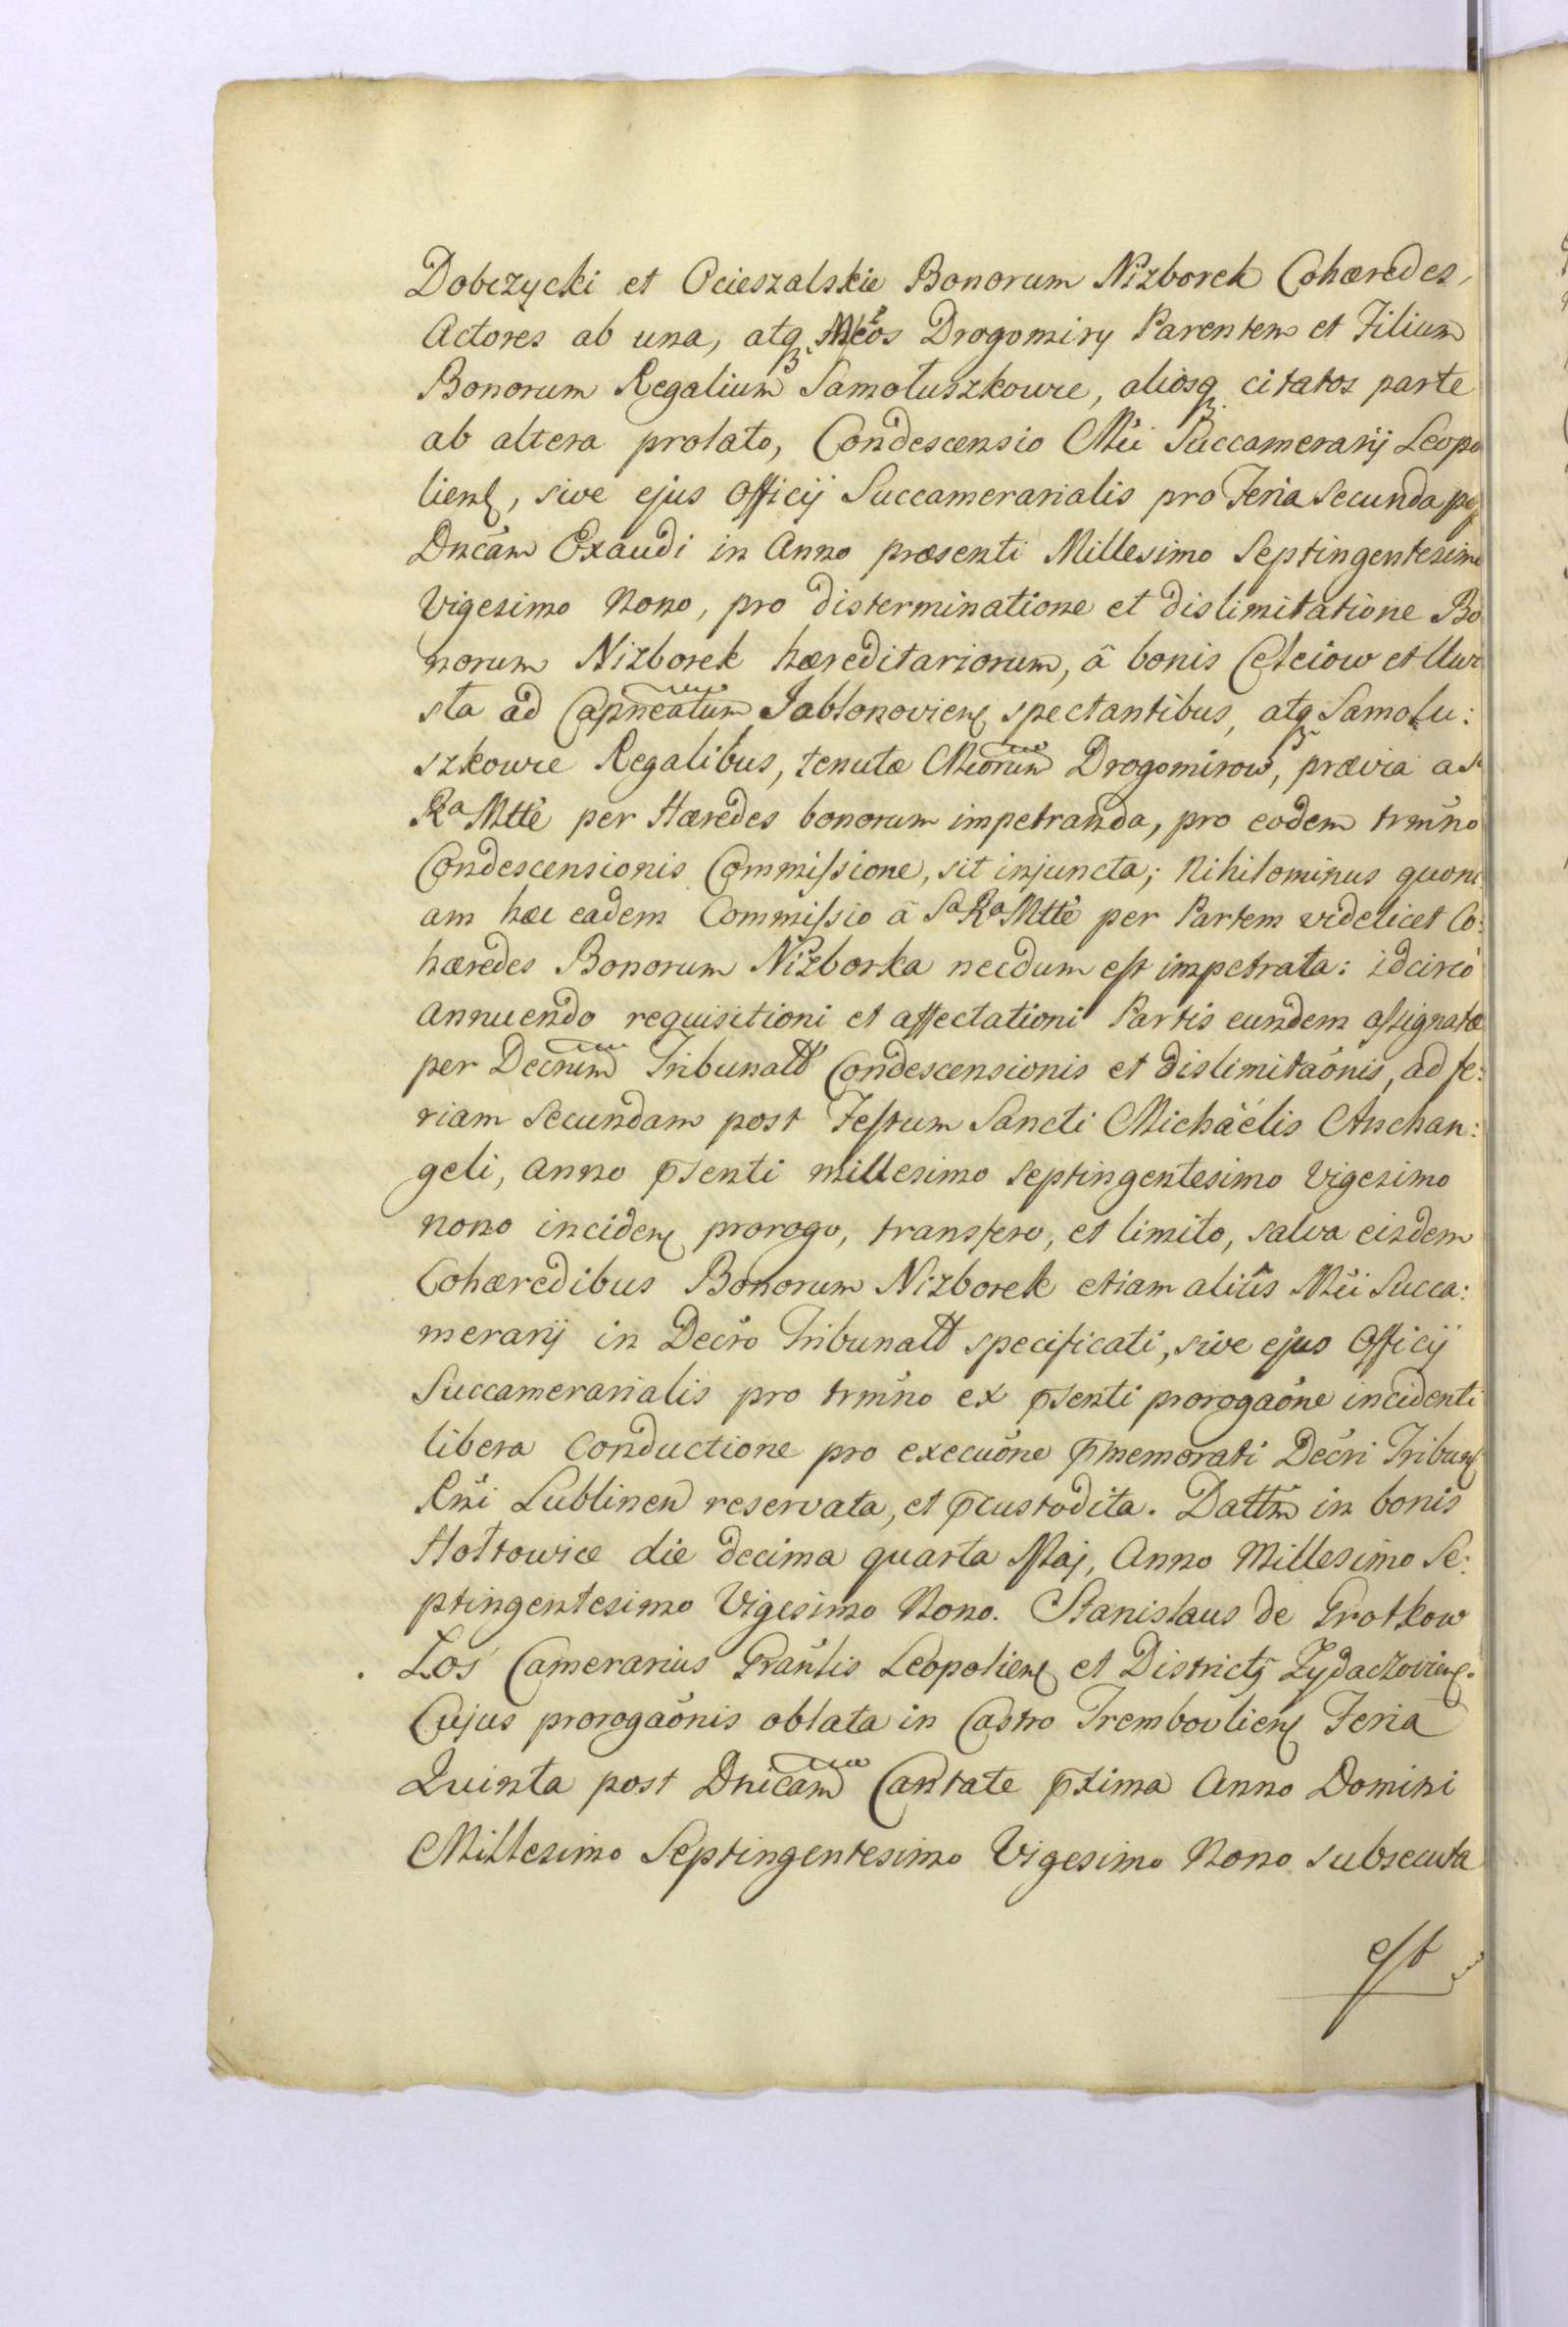 Dobczycki et Ocieszalskie Bonorum Niżborek Cohæredes,
Actores ab una, atq₃ Mcos Drogomiry Parentem et Filium
Bonorum Regalium Samołuszkowce, aliosq₃ citatos parte
ab altera prolato, Condescensio Mci Succamerarij Leopo
lien, sive ejus Officij Succamerarialis pro Feria Secunda
Dncam Exaudi in Anno præsenti Millesimo Septingentesimo
Vigesimo Nono, pro disterminatione et dislimitatione Bo
norum Niżborek hæreditariorum, â bonis Celeiow et Uwi
sła ad Capneatum Jabłonovien spectantibus, atq₃ Samołu:
szkowce Regalibus, tenutæ Mcorum Drogomirow, prævia a Sa
Ra Mtte per Hæredes bonorum impetranda, pro eodem trmno
Condescensionis Commissione, sit injuncta; Nihilominus quoni
am hæc eadem Commissio â Sa Ra Mtte per Partem videlicet Co:
hæredes Bonorum Niżborka necdum est impetrata: idcirco
annuendo requisitioni et affectationi Partis eundem assignatæ
per Decrum Tribunall Condescensionis et dislimitaonis, ad fe:
riam Secundam post Festum Sancti Michaëlis Archan:
geli, anno pſenti millesimo Septingentesimo Vigesimo
nono inciden prorogo, transfero, et limito, salva eisdem
Cohæredibus Bonorum Niżborek etiam aliûs Mci Succa:
merarij in Decro Tribunall specificati, sive ejus Officij
Succamerarialis pro trmno ex pſenti prorogaone incidenti
libera Conductione pro execuone pmemorati Decri Tribun
Rni Lublinen reservata, et pcustodita. Dattm in bonis
Hołtowice die decima quarta Maj, Anno Millesimo Se:
ptingentesimo Vigesimo Nono. Stanislaus de Grotkow
Łoś Camerarius Granlis Leopolien et Districtq Zydaczovien.
Cujus prorogaonis oblata in Castro Trembovlien Feria
Quinta post Dnicam Cantate pxima Anno Domini
Millesimo Septingentesimo Vigesimo Nono subsecuta
est